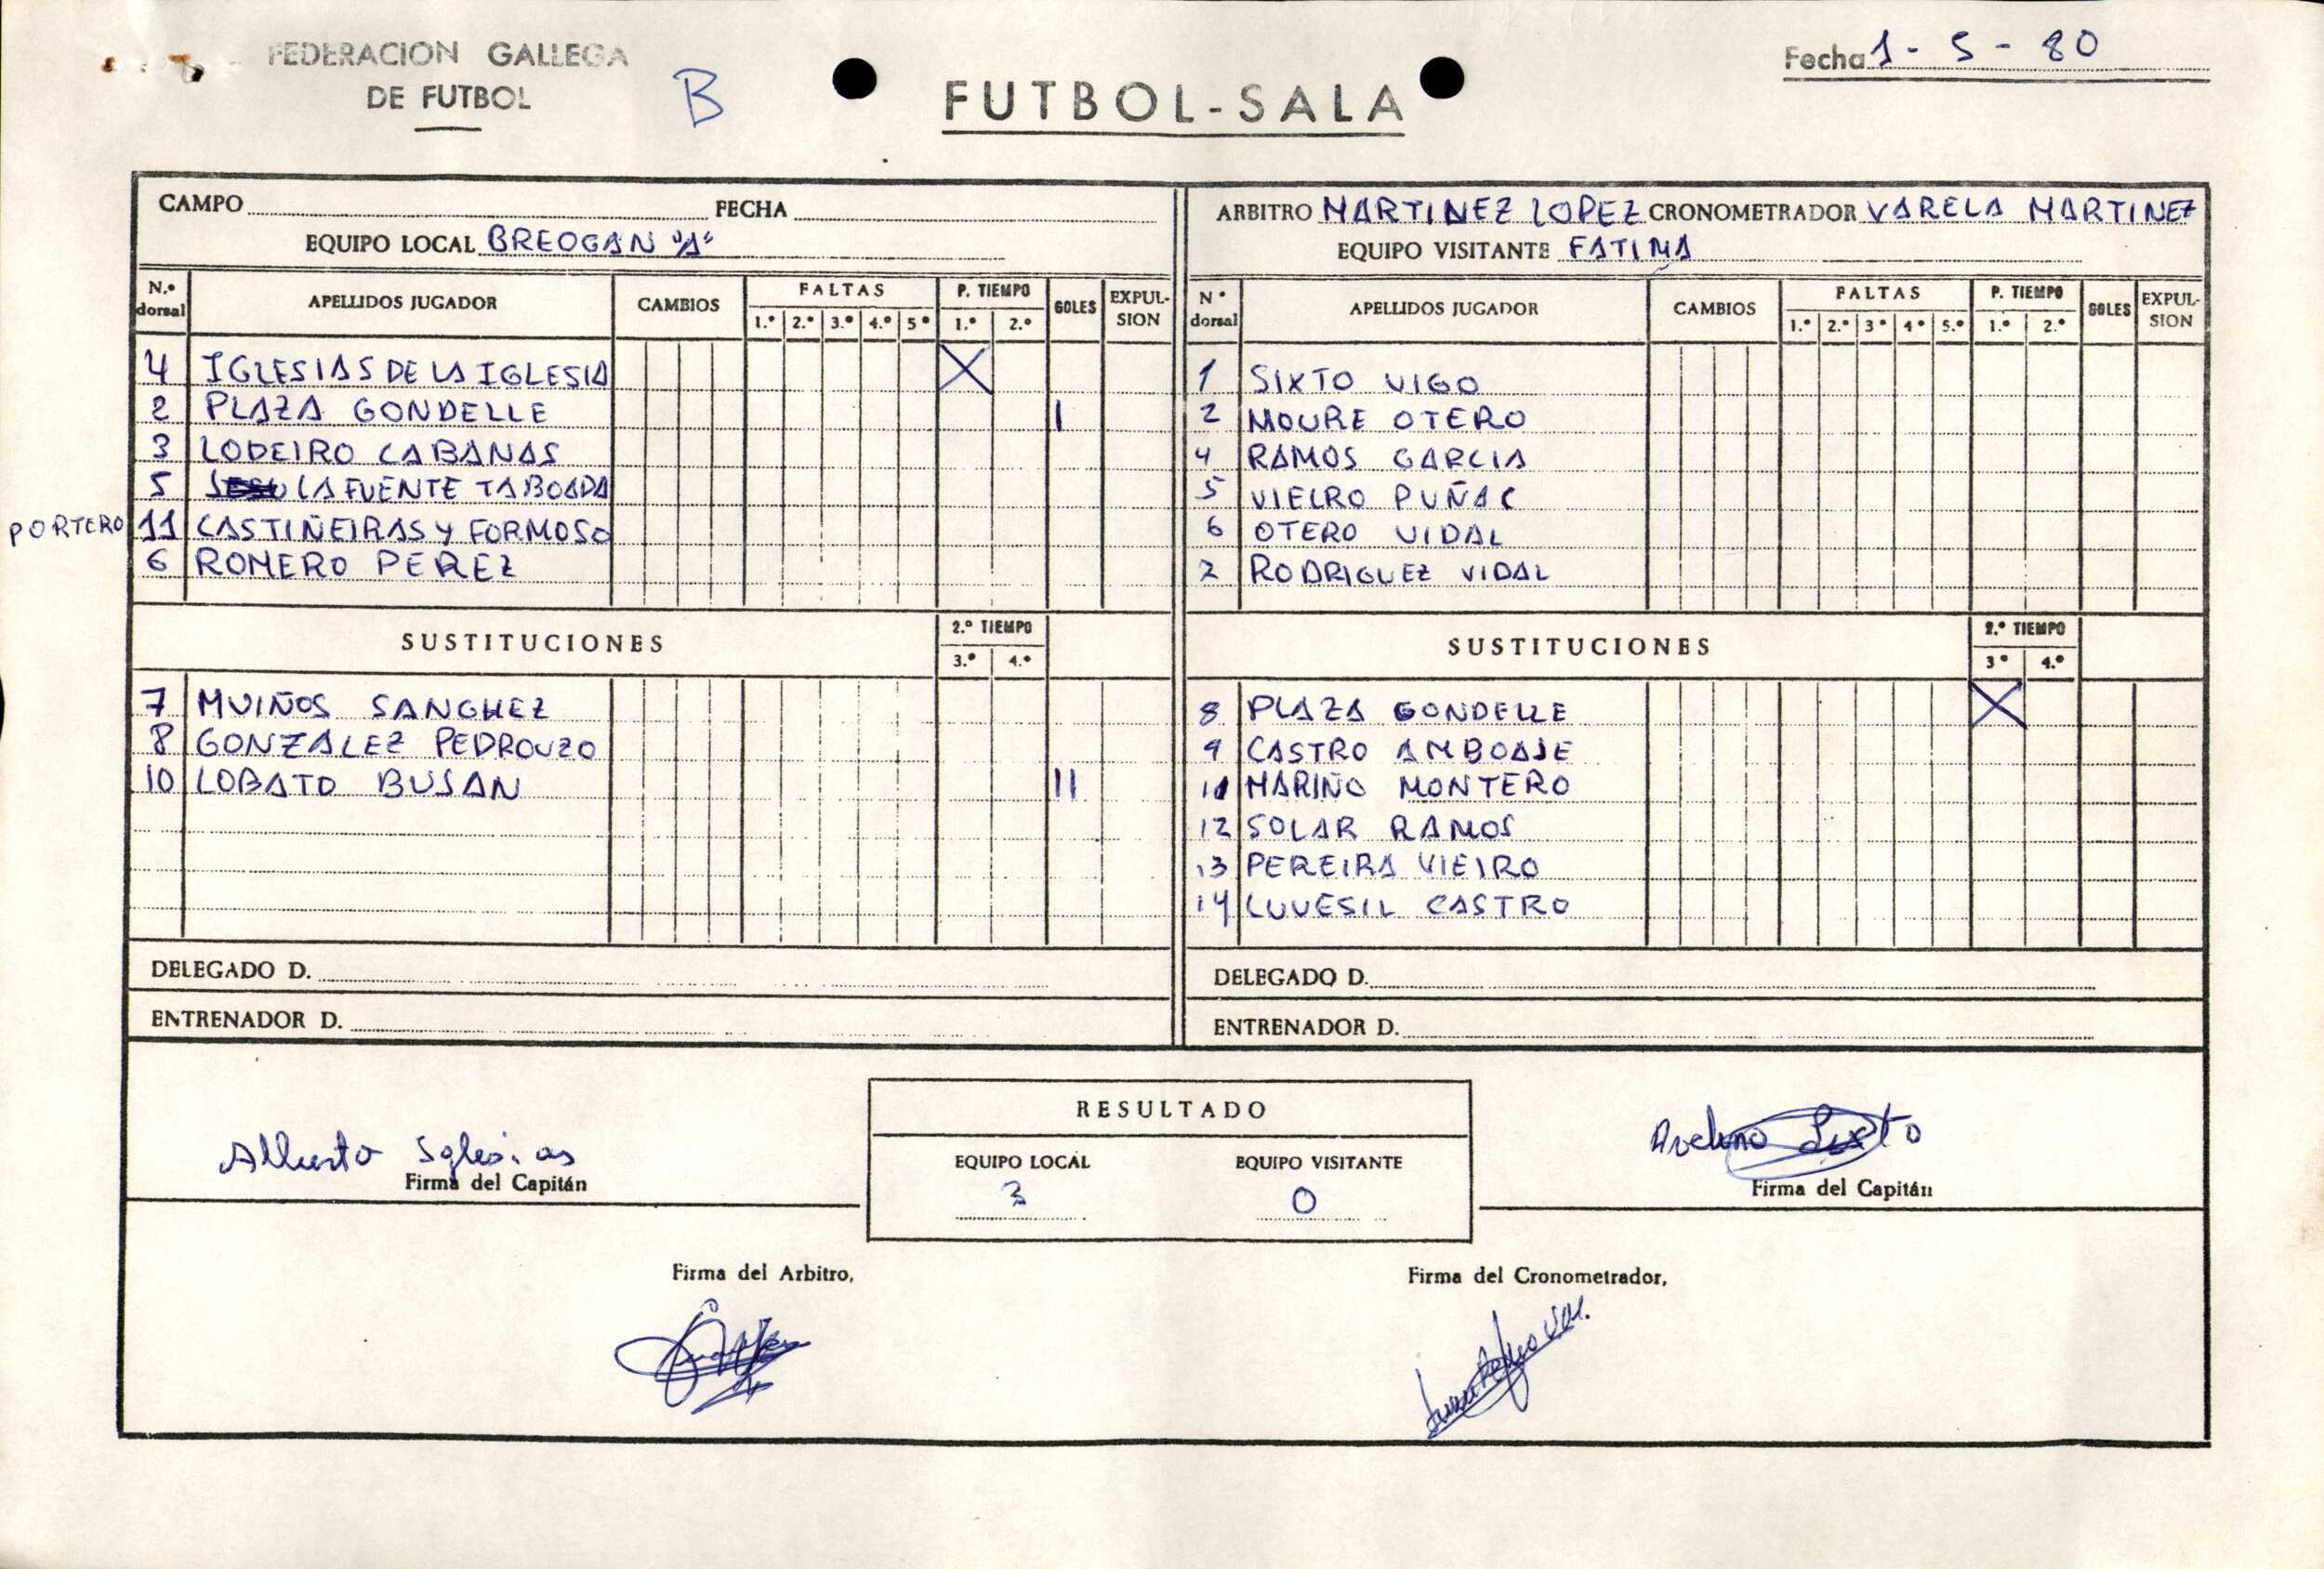 FEDERACION GALLEGA
DE FUTBOL
B
FUTBOL-SALA
Fecha 1 - 5 - 80
CAMPO FECHA
EQUIPO LOCAL BREOGAN "A"
N.º dorsal APELLIDOS JUGADOR CAMBIOS FALTAS 1.º 2.º 3.º 4.º 5º P. TIEMPO 1.º 2.º GOLES EXPULSION
4 IGLESIAS DE LA IGLESIA X
2 PLAZA GONDELLE I
3 LODEIRO CABANAS
5 LA FUENTE TABOADA
PORTERO 11 CASTIÑEIRAS Y FORMOSO
6 ROMERO PEREZ
SUSTITUCIONES 2.º TIEMPO 3.º 4.º
7 MUIÑOS SANCHEZ
8 GONZALEZ PEDROUZO
10 LOBATO BUSAN II
DELEGADO D.
ENTRENADOR D.
ARBITRO MARTINEZ LOPEZ CRONOMETRADOR VARELA MARTINEZ
EQUIPO VISITANTE FATIMA
Nº dorsal APELLIDOS JUGADOR CAMBIOS FALTAS 1.º 2.º 3º 4º 5.º P. TIEMPO 1.º 2.º GOLES EXPULSION
1 SIXTO VIGO
2 MOURE OTERO
4 RAMOS GARCIA
5 VIEIRO
6 OTERO VIDAL
7 RODRIGUEZ VIDAL
SUSTITUCIONES 2.º TIEMPO 3º 4.º
8 PLAZA GONDELLE X
9 CASTRO AMBOAJE
11 MARIÑO MONTERO
12 SOLAR RAMOS
13 PEREIRA VIEIRO
14 LUVESIL CASTRO
DELEGADO D.
ENTRENADOR D.
Alberto Iglesias
Firma del Capitán
RESULTADO
EQUIPO LOCAL EQUIPO VISITANTE
3 0
Avelino Sixto
Firma del Capitán
Firma del Arbitro,
Firma del Cronometrador,